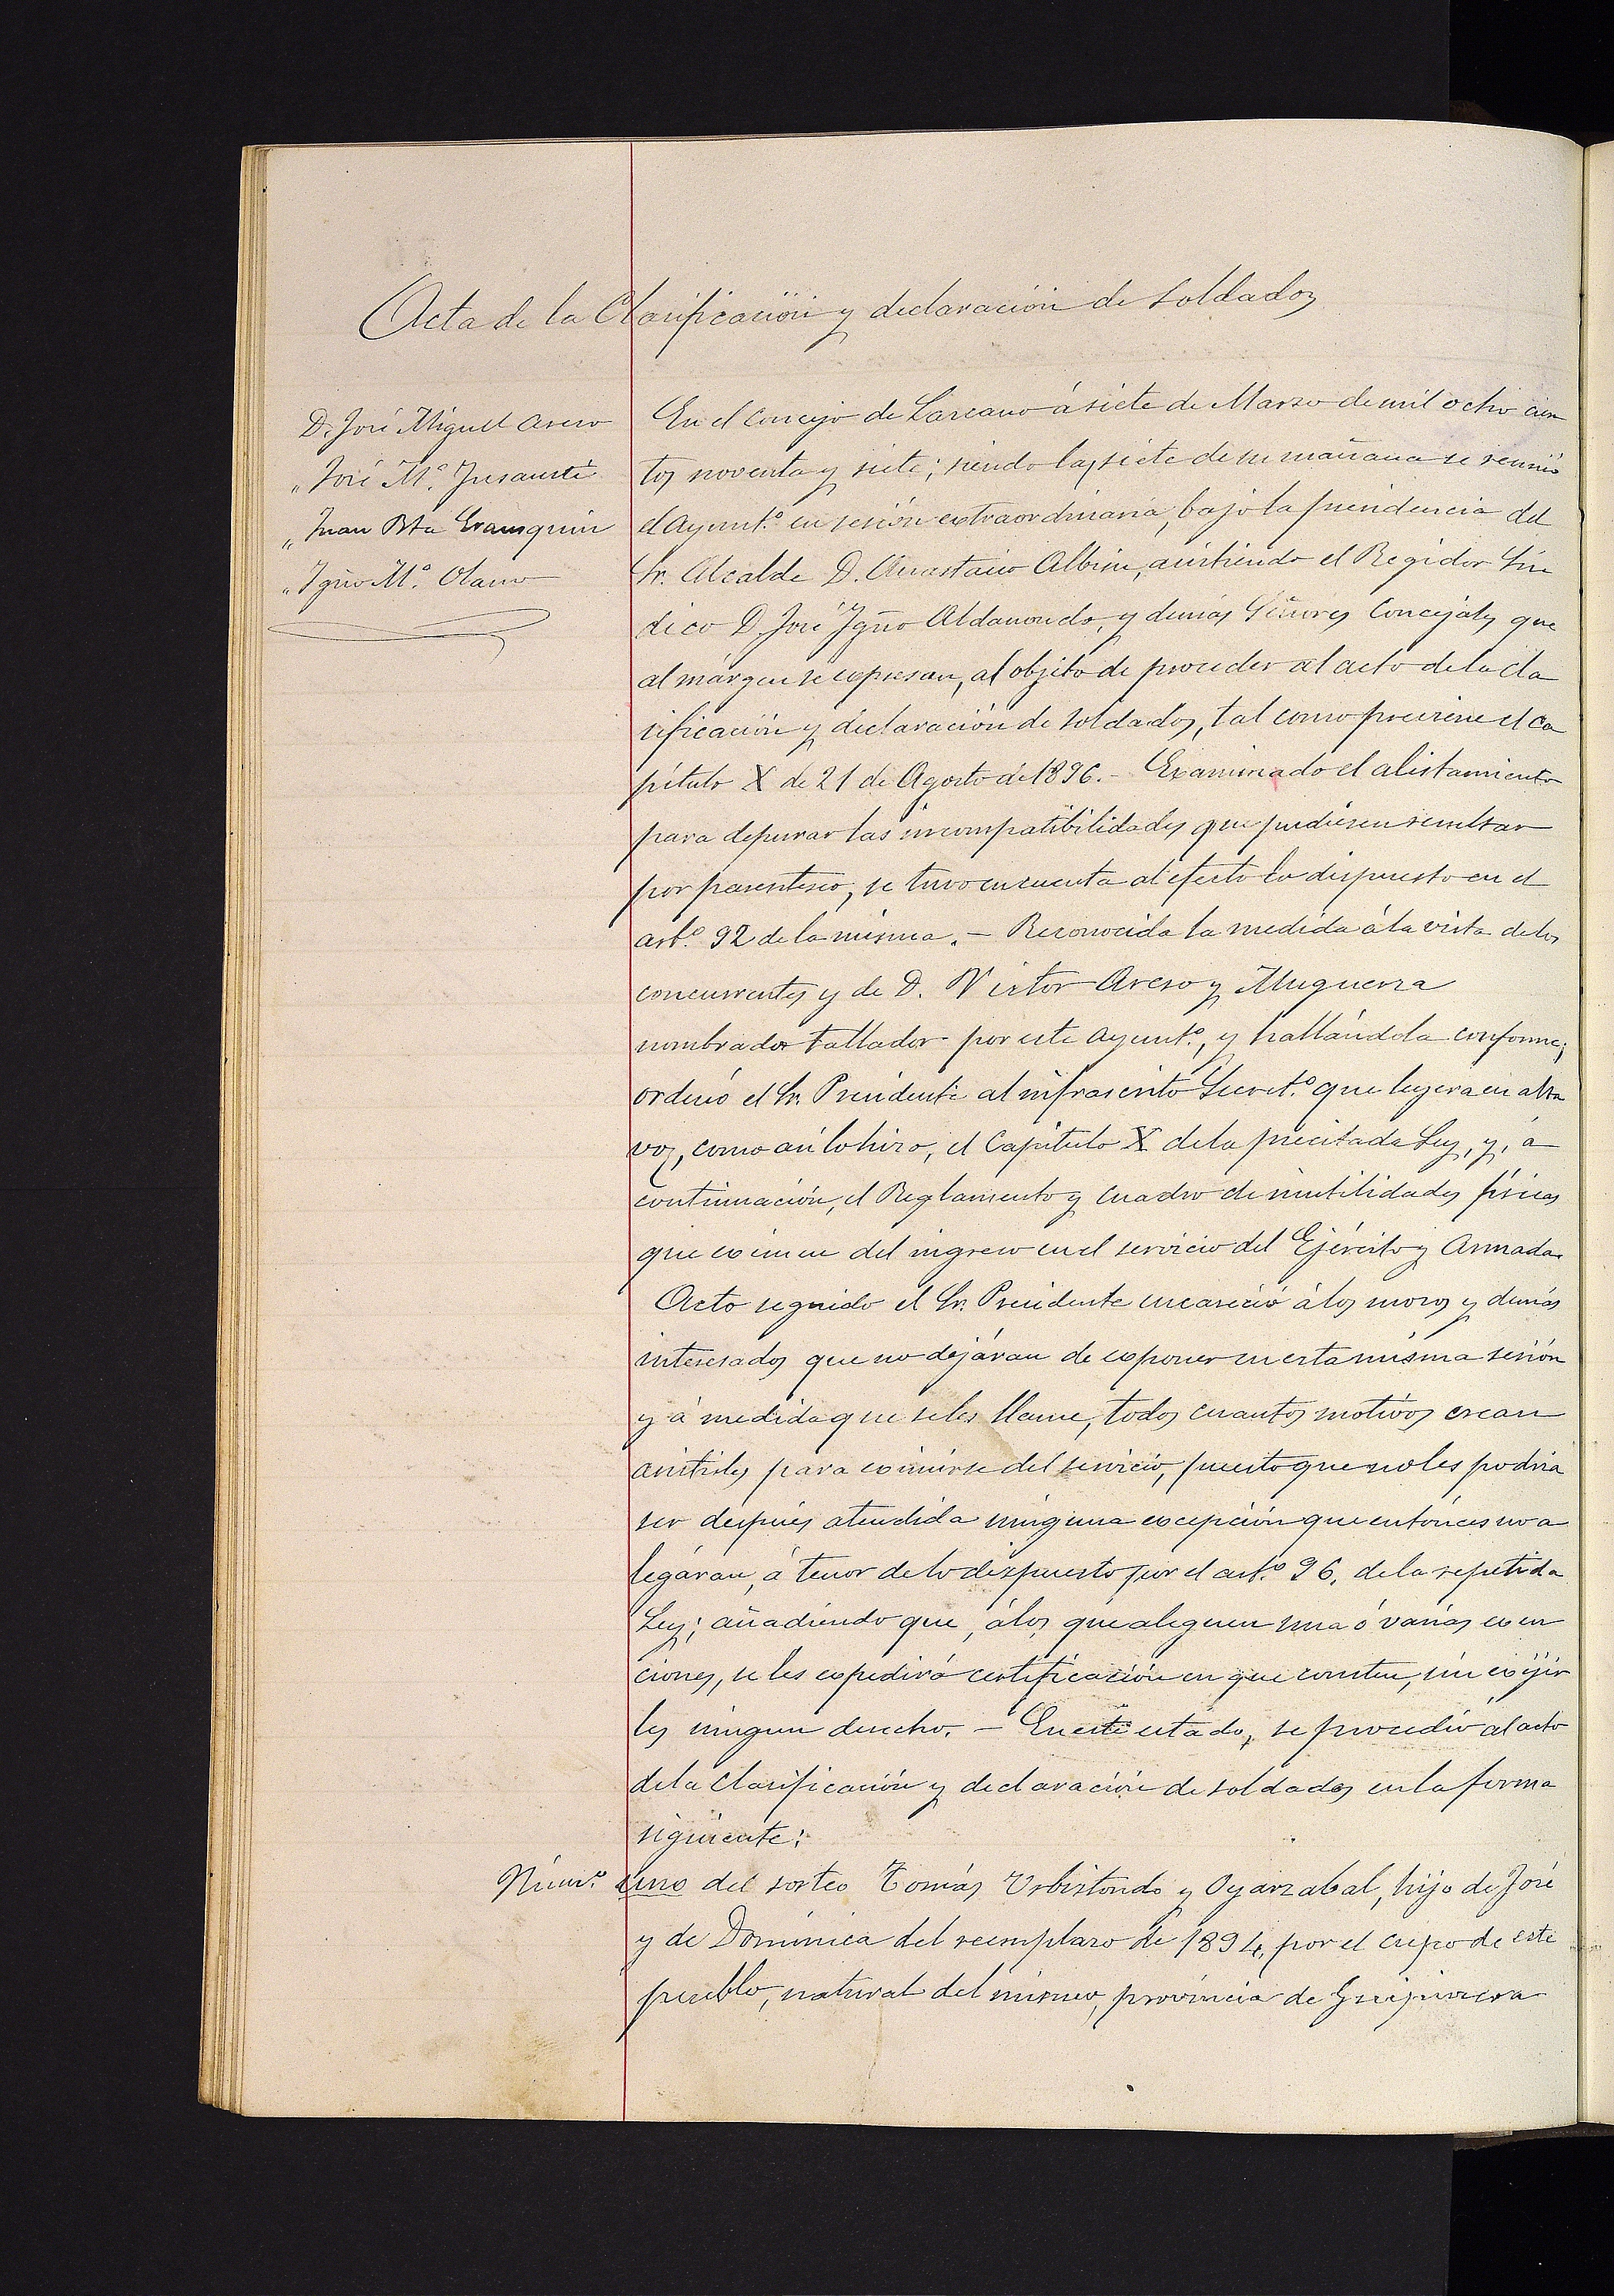 Acta de la Clasificación y declaración de soldados
D. José Miguel Areso
„ José M.ª Insausti
„ Juan Bta Eransquin
„ Ygn̄o M.ª Olano
En el Concejo de Lazcano á siete de Marzo de mil ocho cien
tos noventa y siete; siendo las siete de su mañana se reunió
el Ayunt.º en sesión extraordinaria, bajo la presidencia del
Sr. Alcalde D. Anastasio Albisu, asistiendo el Regidor Sín
dico D. José Ygn̄o Aldanondo, y demás Señores Concejales que
al márgen se expresan, al objeto de proceder al acto de la cla
sificación y declaración de soldados, tal como previene el ca
pítulo X de 21 de Agosto de 1896. - Examinado el alistamiento
para depurar las incompatibilidades que pudiesen resultar
por parentesco, se tuvo en cuenta al efecto lo dispuesto en el
art.º 92 de la misma. - Reconocida la medida á la vista de los
concurrentes y de D. Victor Areso y Muguerza
nombrado tallador por este Ayunt.º, y hallándola conforme;
ordenó el Sr. Presidente al infrascrito Secret.º que leyera en alta
voz, como así lo hizo, el Capítulo X de la precitada Ley, y, á
continuación, el Reglamento y cuadro de inutilidades físicas
que eximen del ingreso en el servicio del Ejército y Armada.
Acto seguido el Sr. Presidente encareció á los mozos y demás
interesados que no dejáran de exponer en esta misma sesión
y á medida que se les llame, todos cuantos motivos crean
asistirles para eximirse del servicio, puesto que no les podria
ser después atendida ninguna excepción que entónces no a
legáran, á tenor de lo dispuesto por el art.º 96, de la repetida
Ley; añadiendo que, á los que aleguen una ó varias exen
ciones, se les expedirá certificación en que consten, sin exijir
les ningun derecho. - En este estado, se procedió al acto
de la clasificación y declaración de soldados en la forma
siguiente:
Núm.º uno del sorteo Tomás Urbistondo y Oyarzabal, hijo de José
y de Dominica del reemplazo de 1894, por el cupo de este
pueblo, natural del mismo, provincia de Guipúzcoa